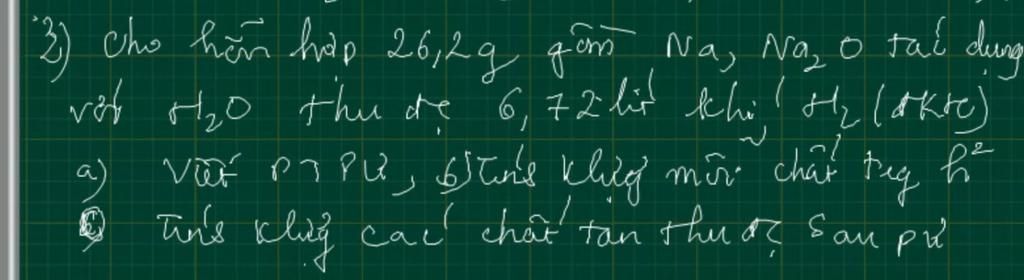 3) Cho hỗn hợp 26,2g gồm Na, Na₂O tác dụng
với H₂O thu đc 6,72 lít khí H₂ (đktc)
a) Viết PTPƯ, b) Tính klượg mỗi chất trg h²
c) Tính klượg các chất tan thu đc sau pư